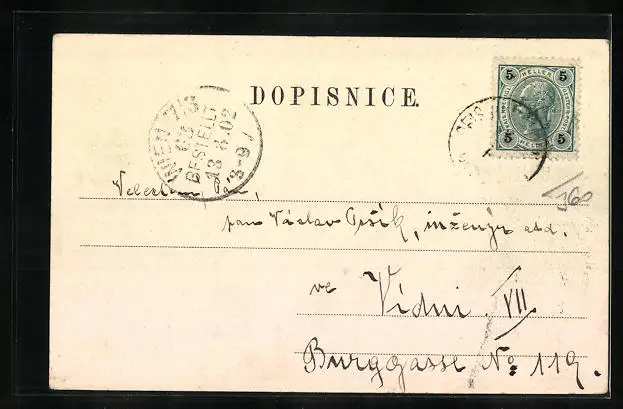 DOPISNICE.
5 HELLER 5
5 HELLER 5
WIEN 7/3
63
BESTELLT
13.8.02
8-9
160
pan Václav, inženýr etd.
ve Vídni VII
Burggasse No: 119.